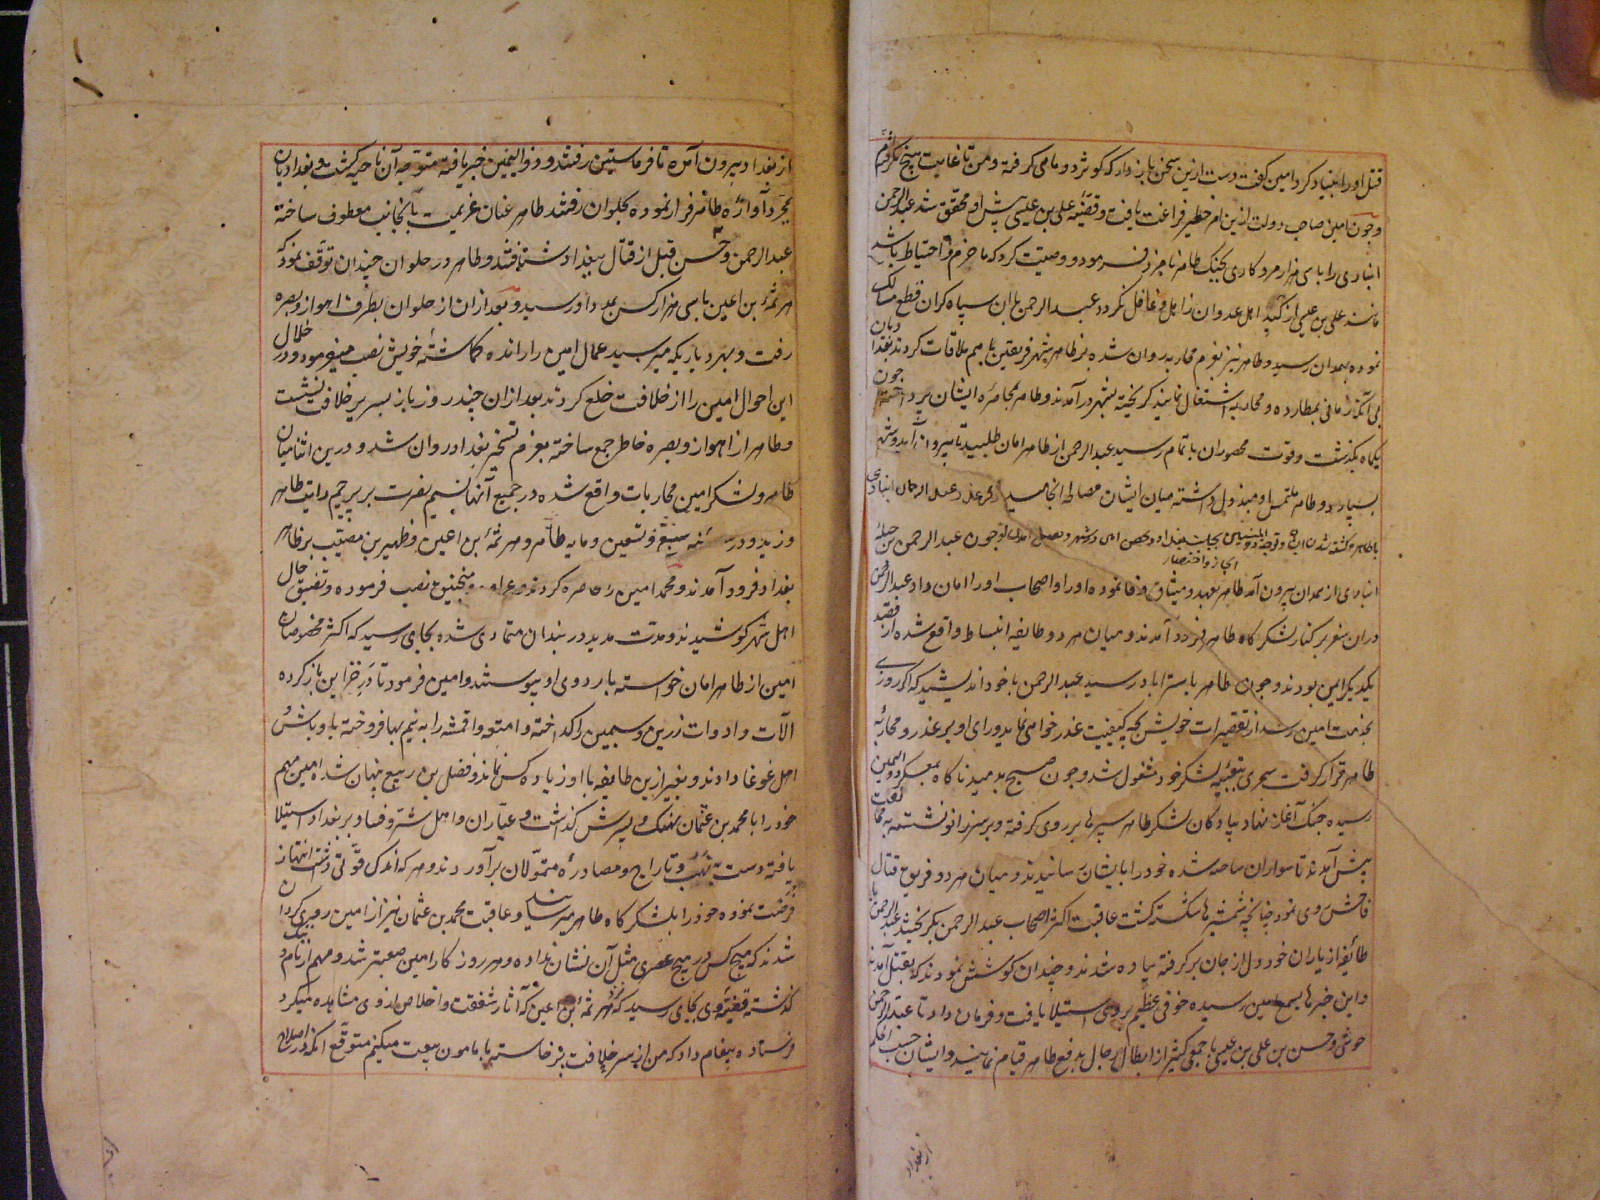 قتل اورا بنیاد کرد امین کفت دست ازین سخن باز دار که کوثر دو ماهی کرفته و من تا غایت هیچ نکرفته‌ام
و چون امین صاحب دولت ازین امر خطیر فراغت یافت و قضیه علی بن عیسی پیش او محقق شد عبدالرحمن
انباری را با سی هزار مرد کاری بجنک طاهر نامزد فرمود و وصیت کرد که با حزم و احتیاط باشد
مانند علی بن عیسی از کید اهل عدوان ذاهل و غافل نکردد عبدالرحمن با آن سپاه کران قطع مسالک
نموده بهمدان رسید و طاهر نیز بعزم محاربه روان شده بر ظاهر شهر فریقین با هم ملاقات کردند
بی آنکه زمانی بمطارده و محاربه اشتغال نمایند کریخته بشهر درآمدند و طاهر بمحاصره ایشان پرداخت چون
یکماه بکذشت و قوت محصوران باتمام رسید عبدالرحمن از طاهر امان طلبید تا بیرون آید و شهر
بسپارد و طاهر ملتمس او مبذول داشته میان ایشان مصالحه انجامید ذکر غدر عبد الرحمن انباری
با طاهر و کشته شدن او و توجه ذو الیمینین بجانب بغداد و تحصن امین در شهر و بعضی احوال او چون عبدالرحمن بن جبله
ایجاز و اختصار
انباری از همدان بیرون آمد طاهر بعهد و میثاق وفا نموده او را و اصحاب او را امان داد عبدالرحمن
دران سفر بر کنار لشکر کاه طاهر فرود آمدند و میان هر دو طایفه انبساط واقع شده از قصد
یکدیکر ایمن بودند و چون طاهر باستراباد رسید عبدالرحمن با خود اندیشید که اکر روزی
بخدمت امین رسد از تقصیرات خویش بچه کیفیت عذر خواهی نماید و رای او بر غدر و محاربه
طاهر قرار کرفت سحری بتعبیه لشکر خود مشغول شد و چون صبح بدمید ناکاه بمعسکر ذوالیمینین
رسیده جنک آغاز نهاد پیادکان لشکر طاهر سپرها بر روی کرفته و بر سر زانو نشسته بمدافعت
پیش آمدند تا سواران ساخته شده خود را بایشان رسانیدند و میان هر دو فریق قتال
فاحش روی نمود چنانچه شمشیرها شکسته کشت عاقبت اکثر اصحاب عبدالرحمن بکریختند عبدالرحمن با
طائفه از یاران خود دل از جان برکرفته پیاده شدند و چندان کوشش نمودند که بقتل آمدند
و این خبرها بسمع امین رسیده خوفی عظیم بر وی استیلا یافت و فرمان داد تا عبدالرحمن
حرشی و حسن بن علی بن عیسی با جمعی کثیر از ابطال رجال بدفع طاهر قیام نمایند و ایشان حسب الحکم
از بغداد
از بغداد بیرون آمده تا قرماسین رفتند و ذوالیمینین خبر یافته متوجه آن ناحیه کشت و بغدادیان
بمجرد آوازه طاهر فرار نموده بحلوان رفتند طاهر عنان عزیمت بآنجانب معطوف ساخته
عبدالرحمن و حسن قبل از قتال ببغداد شتافتند و طاهر در حلوان چندان توقف نمود که
هرثمه بن اعین با سی هزار کس بمدد او رسید و بعد ازان از حلوان بطرف اهواز و بصره
رفت و بهر دیار که میرسید عمال امین را رانده کماشته خویش نصب میفرمود و در خلال
این احوال امین را از خلافت خلع کردند بعد ازان چند روز باز بسریر خلافت نشست
و طاهر از اهواز و بصره خاطر جمع ساخته بعزم تسخیر بغداد روان شد و درین اثنا میان
طاهر و لشکر امین محاربات واقع شده در جمیع آنها نسیم نصرت بر پرچم رایت طاهر
وزید و در سنه سبع و تسعین و مایه طاهر و هرثمه بن اعین و ظهیر بن مصیب بر ظاهر
بغداد فرود آمدند و محمد امین را محاصره کردند و عراده و منجنیق نصب فرموده و تضییق حال
اهل شهر کوشیدند و مدت مدید در بندان متمادی شده بجایی رسید که اکثر مخصوصان
امین از طاهر امان خواسته باردوی او پیوستند و امین فرمود تا در خزاین باز کرده
آلات و ادوات زرین و سیمین را کداخته و امتعه و اقمشه را به نیم بها فروخته باوباش
اهل غوغا دادند و بغیر ازین طایفه با او زیاده کس نماند و فضل بن ربیع پنهان شد امین مهم
خود را با محمد بن عثمان نهیک و پسرش کذاشت و عیاران و اهل شر و فساد بر بغداد استیلا
یافته دست به نهب و تاراج و مصادره متمولان برآوردند و هر که اندک قوتی داشت انتهاز
فرصت نموده خود را بلشکرکاه طاهر میرسانید و عاقبت محمد بن عثمان نیز از امین روی کردان
شدند که هیچ کس در هیچ عصری مثل آن نشان نداده و هر روز کار امین صعبتر شد و مهم از نام و ننک
کذشته قضیه وی بجای رسید که نزد هرثمه بن اعین که آثار شفقت و اخلاص از وی مشاهده میکرد
فرستاده پیغام داد که من از سر خلافت برخاسته با مامون بیعت میکنم متوقع آنکه در اصلاح